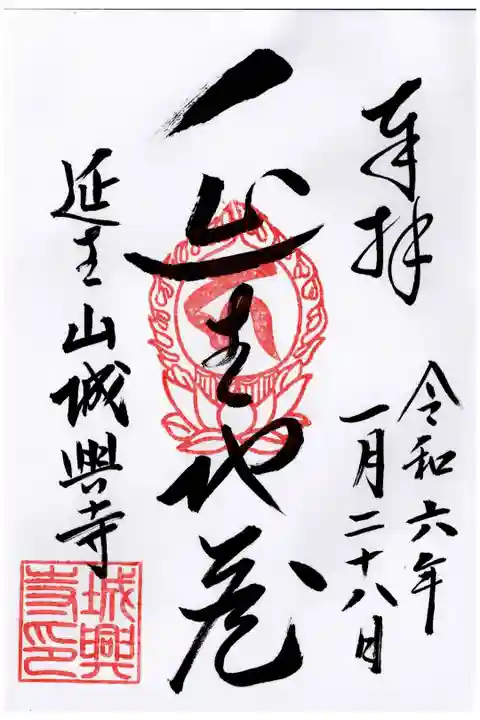 奉拝
令和六年
一月二十八日
一心生
延生山城興寺
城興
寺印